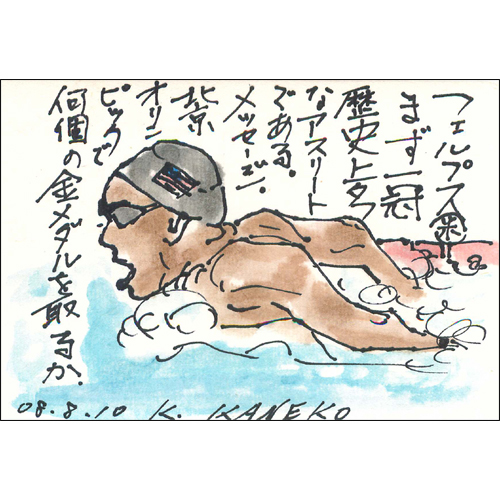 フェルプス㊎!!
まず一冠
歴史上
なアスリート
である。
メッセージ.
北京
オリン
ピックで
何個の金メダルを取るか.
08.8.10 K. KANEKO